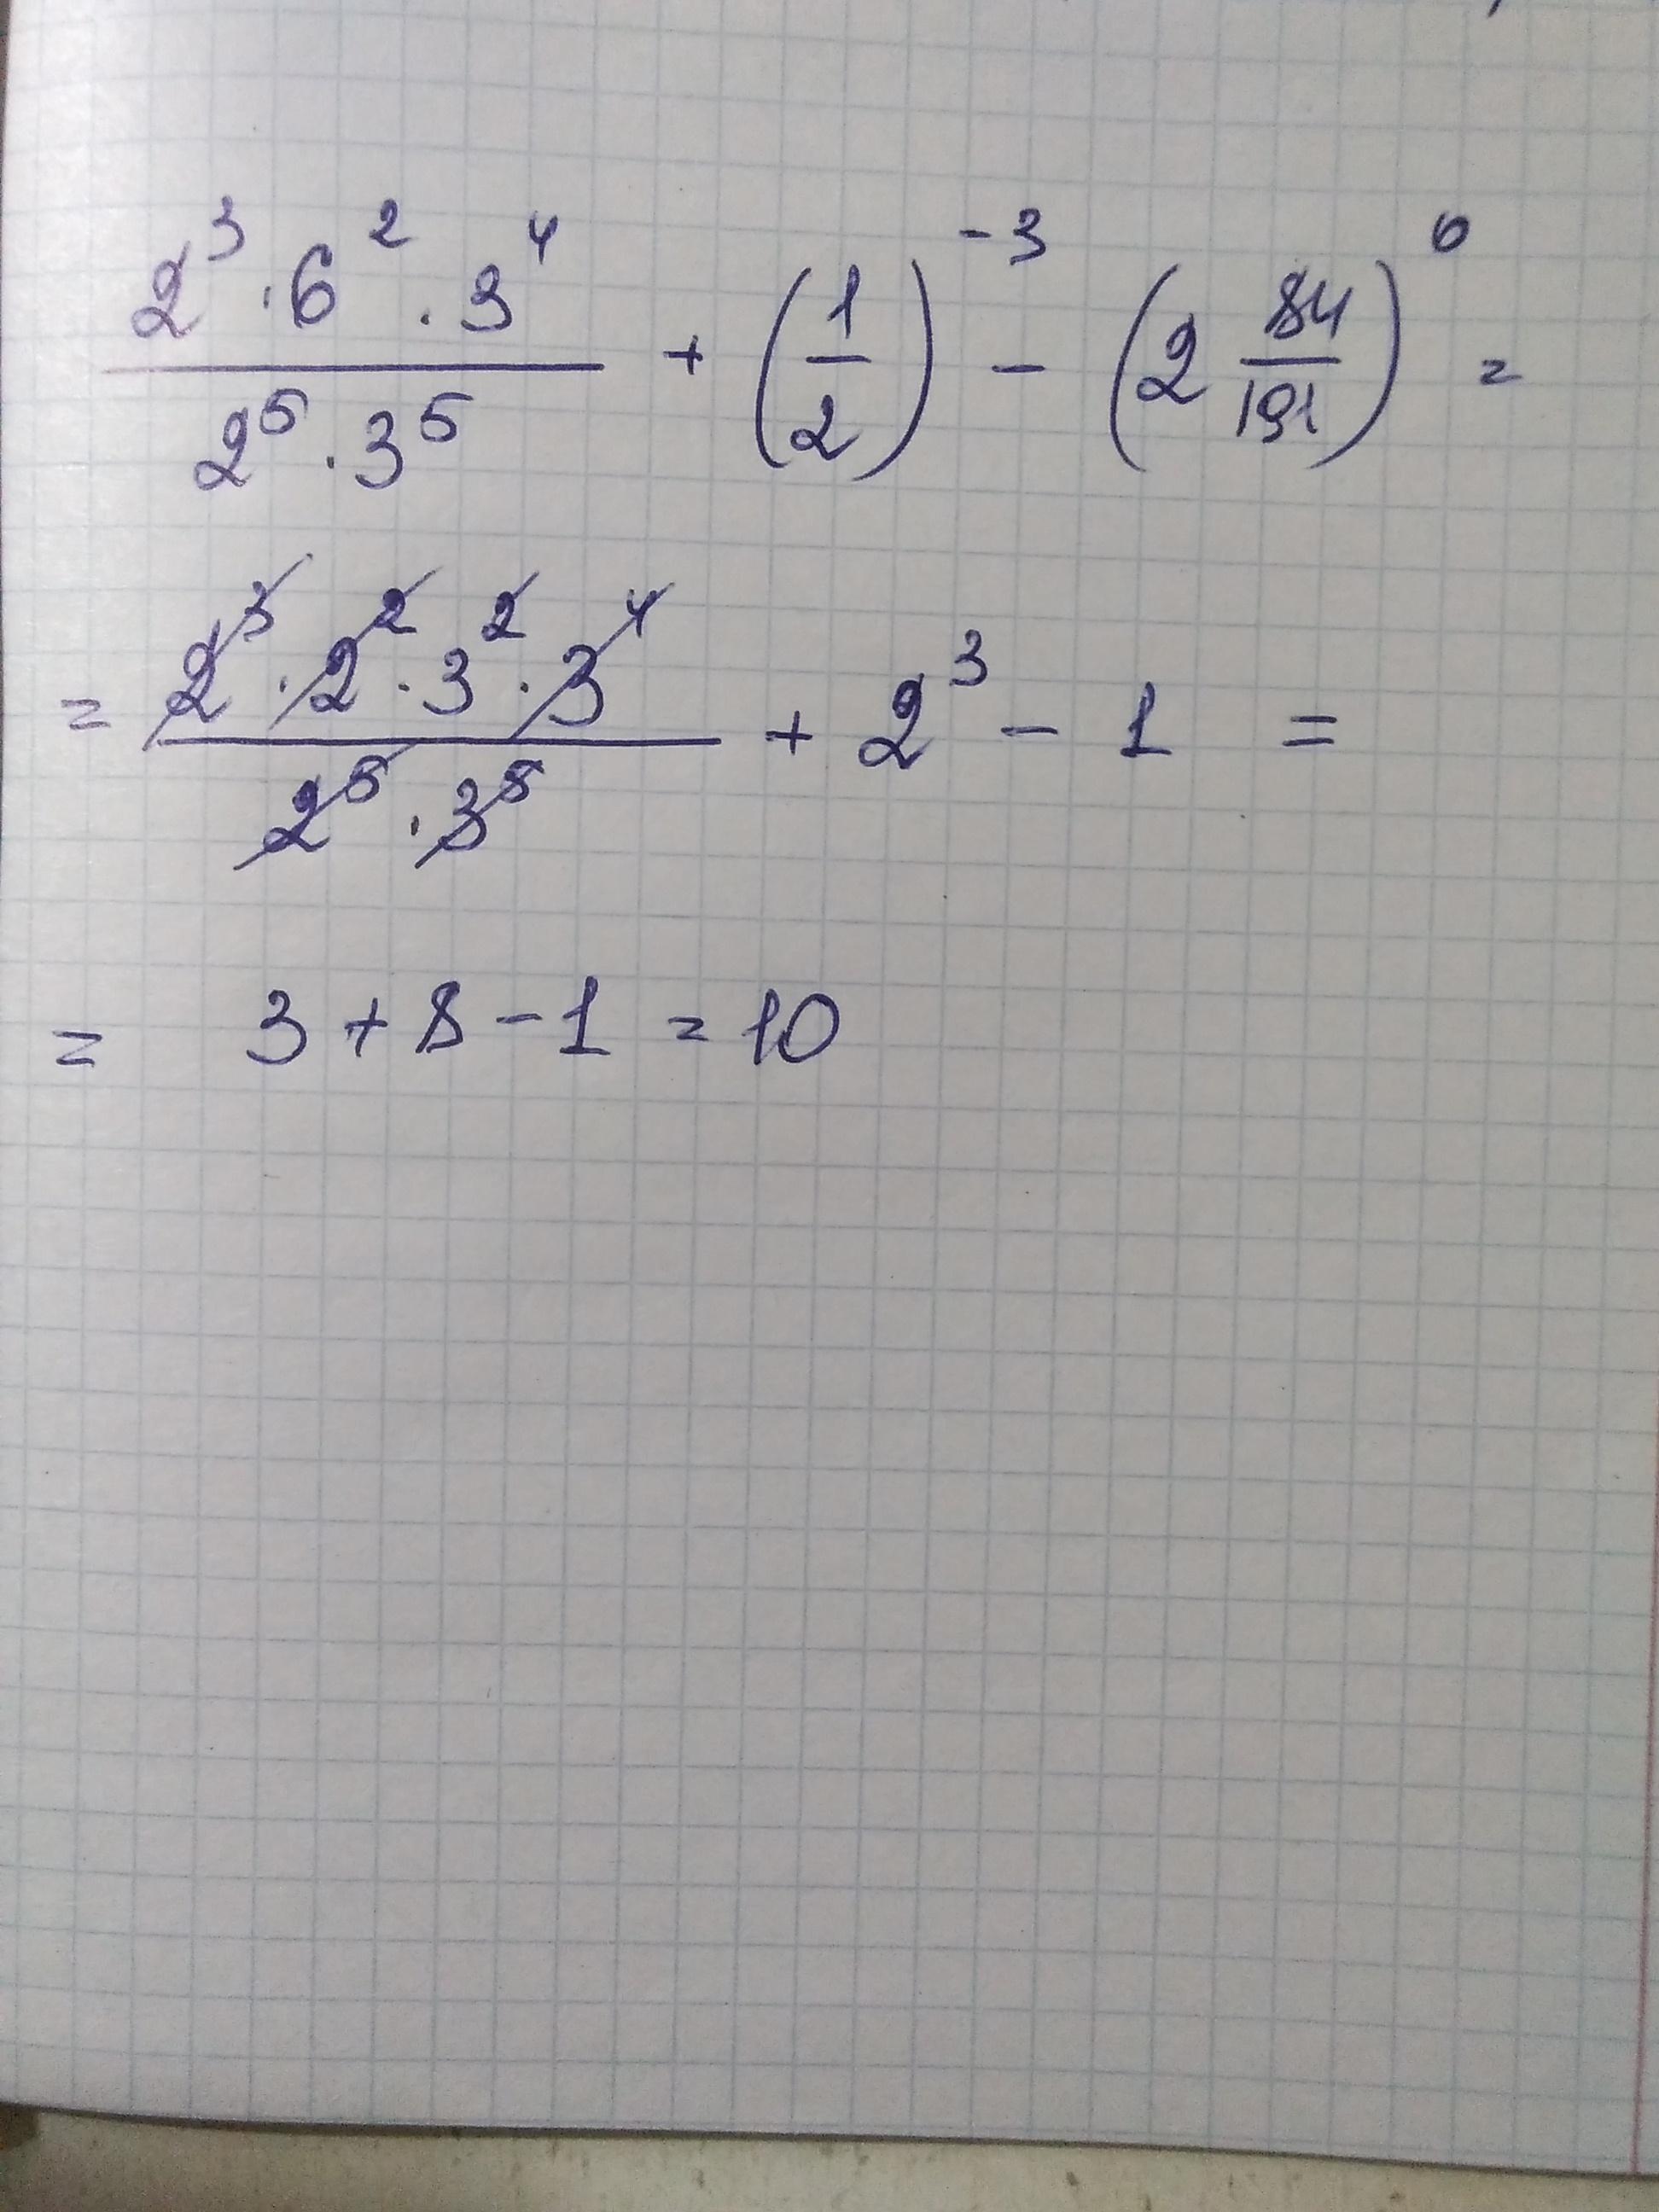 (2³ · 6² · 3⁴)/(2⁵ · 3⁵) + (1/2)⁻³ − (2 84/191)⁰ =
= (2³ · 2² · 3² · 3⁴)/(2⁵ · 3⁵) + 2³ − 1 =
= 3 + 8 − 1 = 10